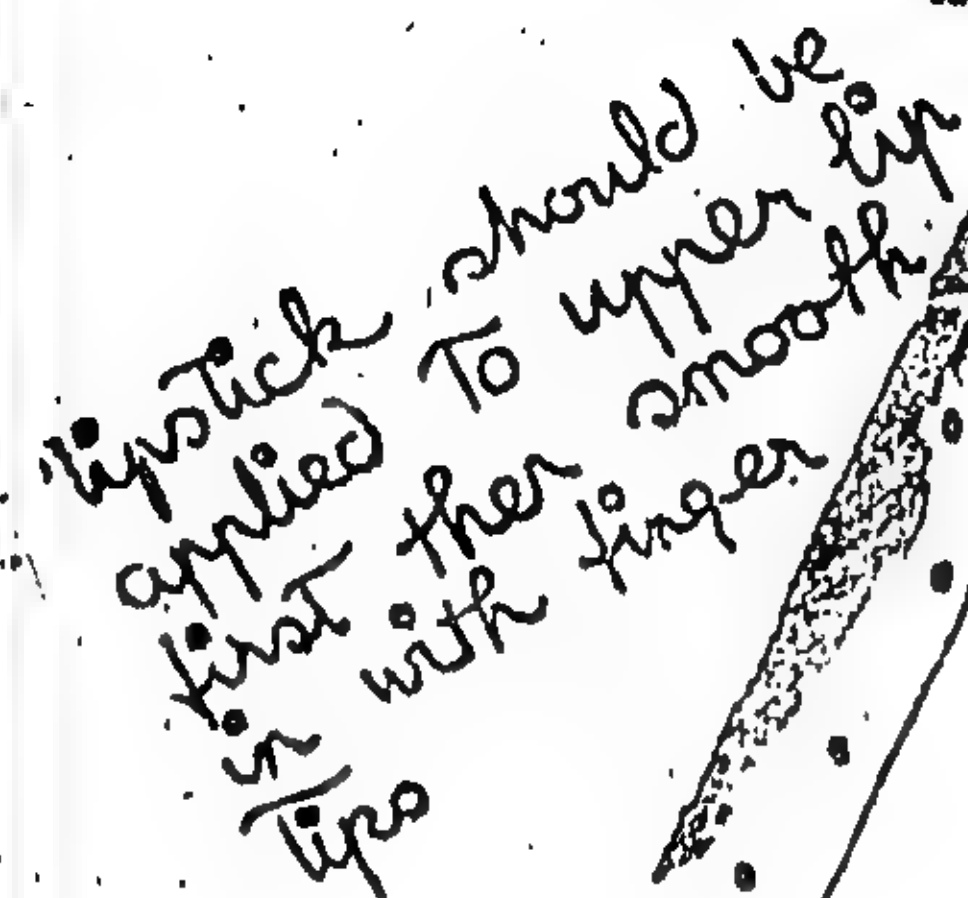 lipstick should be
applied To upper lip
first then smooth
in with finger
Tips